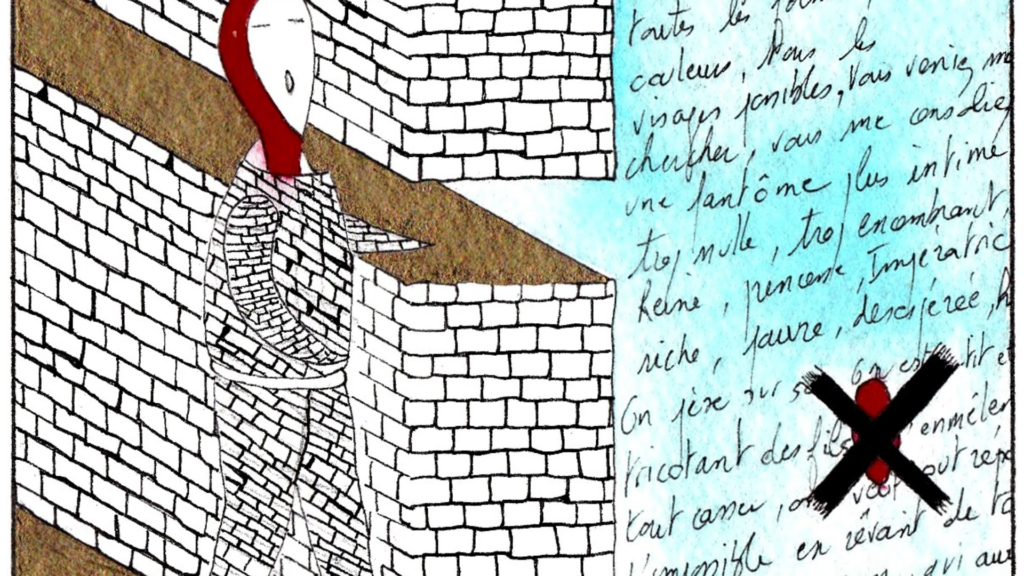 toutes les
couleurs, tous les
visages possibles, vous veniez me
chercher, vous me consoliez
une fantôme plus intime
trop nulle, trop encombrant,
Reine, princesse, Impératric
riche, pauvre, désespérée,
On pèse sur On est et
tricotant des fils enmêler
tout casser, on veut tout répa
l'impossible en rêvant de to
qui au